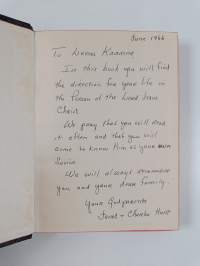 June 1966
To
In this book you will find
the direction for your life in
the Person of the Lord Jesus
Christ.
We pray that you will read
it often and that you will
come to know Him as your own
Savior.
We will always remember
you and your dear family.
Your Godparents
Janet + Charles